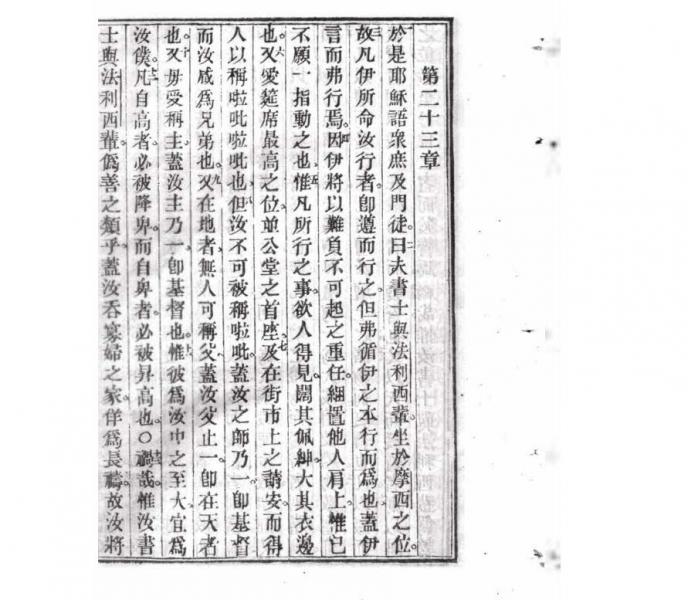 第二十三章
於是耶穌語眾庶及門徒。曰夫書士與法利西輩。坐於摩西之位。
故凡伊所命汝行者。卽遵而行之。但弗循伊之本行而爲也。蓋伊
言而弗行焉。因伊將以難負不可起之重任。綑置他人肩上。惟己
不願一指動之也。惟凡所行之事。欲人得見。闊其佩。大其衣邊
也。又愛筵席最高之位。並公堂之首座。及在街市上之請安。而得
人以稱啦吡啦吡也。但汝不可被稱啦吡。蓋汝之師乃一卽基督
而汝咸爲兄弟也。又在地者。無人可稱父。蓋汝父止一。卽在天者
也。又毋愛稱主。蓋汝主乃一。卽基督也。惟彼爲汝中之至大。宜爲
汝僕。凡自高者。必被降卑。而自卑者。必被昇高也。〇禍哉。惟汝書
士與法利西輩。僞善之類乎。蓋汝吞寡婦之家。佯爲長禱。故汝將